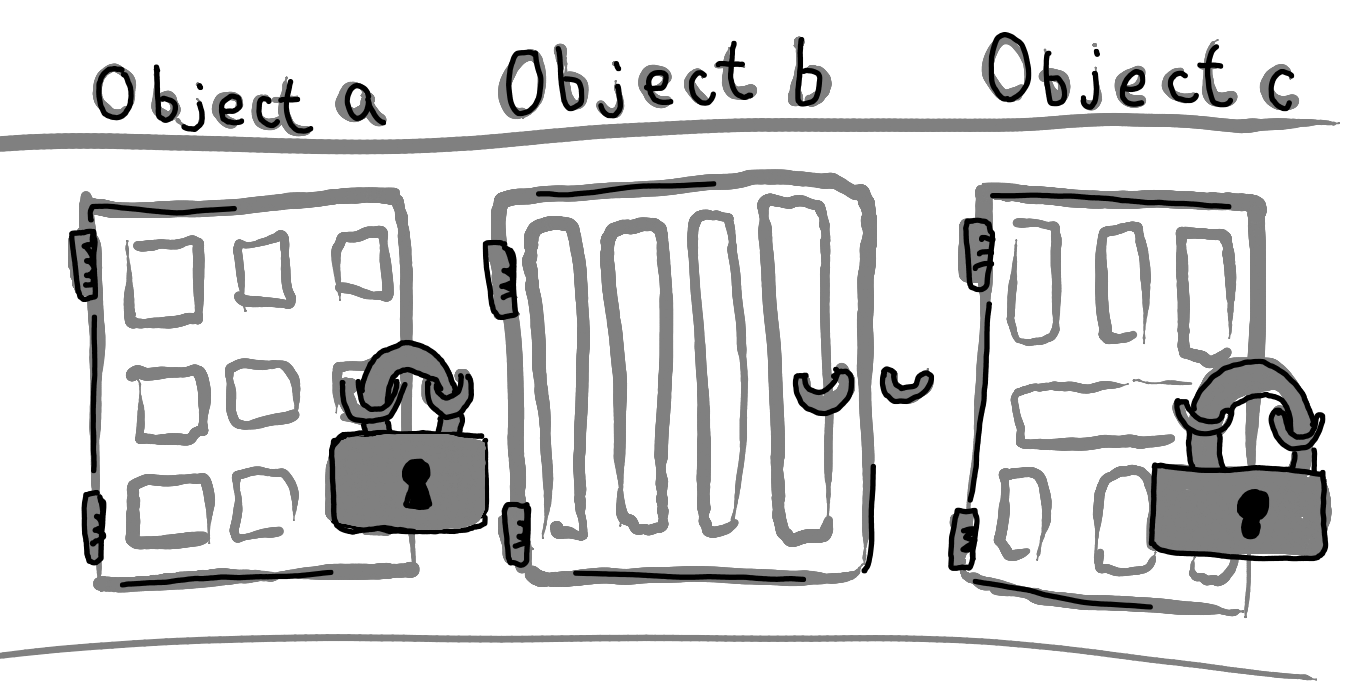 Object a Object b Object c